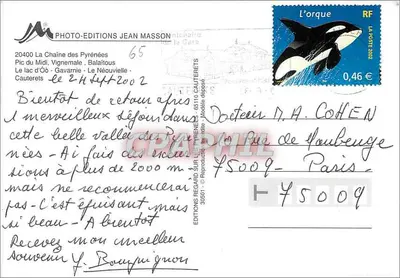 PHOTO-EDITIONS JEAN MASSON
65
20400 La Chaîne des Pyrénées
Pic du Midi, Vignemale, Balaïtous
Le lac d'Oô - Gavarnie - Le Néouvielle
Cauterets le 24 Sept 2002
Bientôt de retour après
1 merveilleux séjour dans
cette belle vallée des Pyré
nées - Ai fais des excur
sions à plus de 2000 m
mais ne recommencerai
pas - C'est épuisant mais
si beau - A bientôt
Recevez mon meilleur
Souvenir Y. Bourguignon
EDITIONS REGARD SUR 65110 CAUTERETS
30501 © Reproduction interdite - Modèle déposé
L'orque RF
LA POSTE 2002
0,46 €
Docteur M. A. COHEN
rue de Maubeuge
75009 - Paris
75009
CPAPHIL